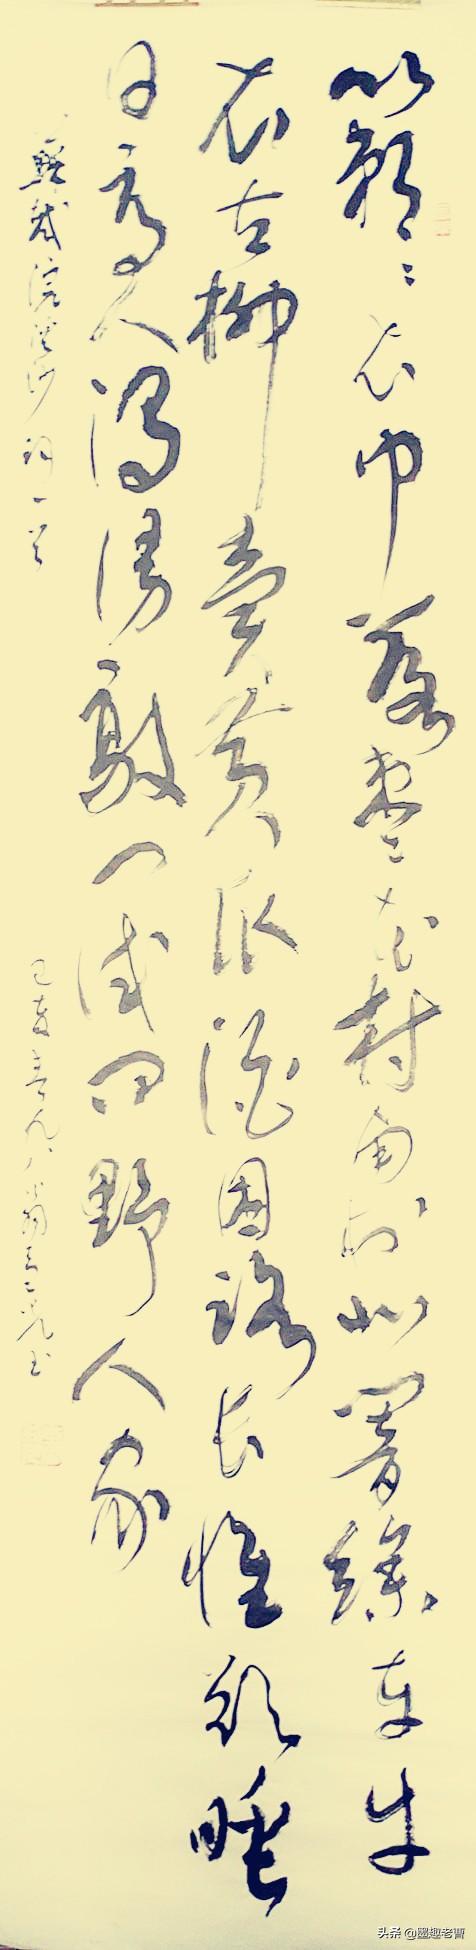 簌々衣巾落枣花村南村北响缲车牛
衣古柳卖黄瓜酒困路长惟欲睡
日高人渴漫敲门试问野人家
苏轼浣溪沙词一首
己亥春九八翁书
头条 @墨趣老曹